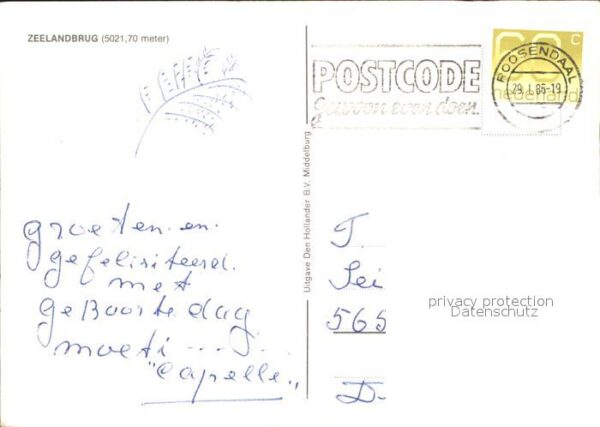 ZEELANDBRUG (5021,70 meter)
60 c
nederland
POSTCODE
gewoon even doen..
ROOSENDAAL
29. I. 86-19
Uitgave Den Hollander B.V. Middelburg
groeten en
gefelisiteerd.
met
geBoorte dag
moeti ... J.
"Capelle"
T.
Sei
565
D-
privacy protection
Datenschutz